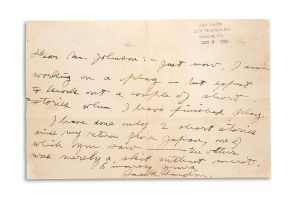 Jack London
Oakland, Cal.
Dear Mr. Johnson:- Just now, I am
working on a play - but expect
to knock out a couple of short
stories when I have finished play.
I have some only 2 short stories
since my return from Japan, one of
which you saw The other
was merely a skit without merit.
Sincerely yours,
Jack London.